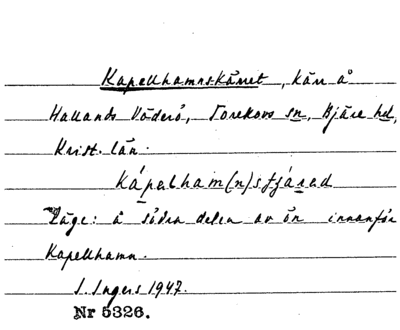 Kapellhamns-Kärret, kärr å
Hallands Väderö, Torekovs sn, Bjäre hd,
Krist. län.
Kápelham(n)stjárad
Läge: å södra delen av ön innanför
Kapellhamn.
I. Ingers 1947.
Nr 5326.